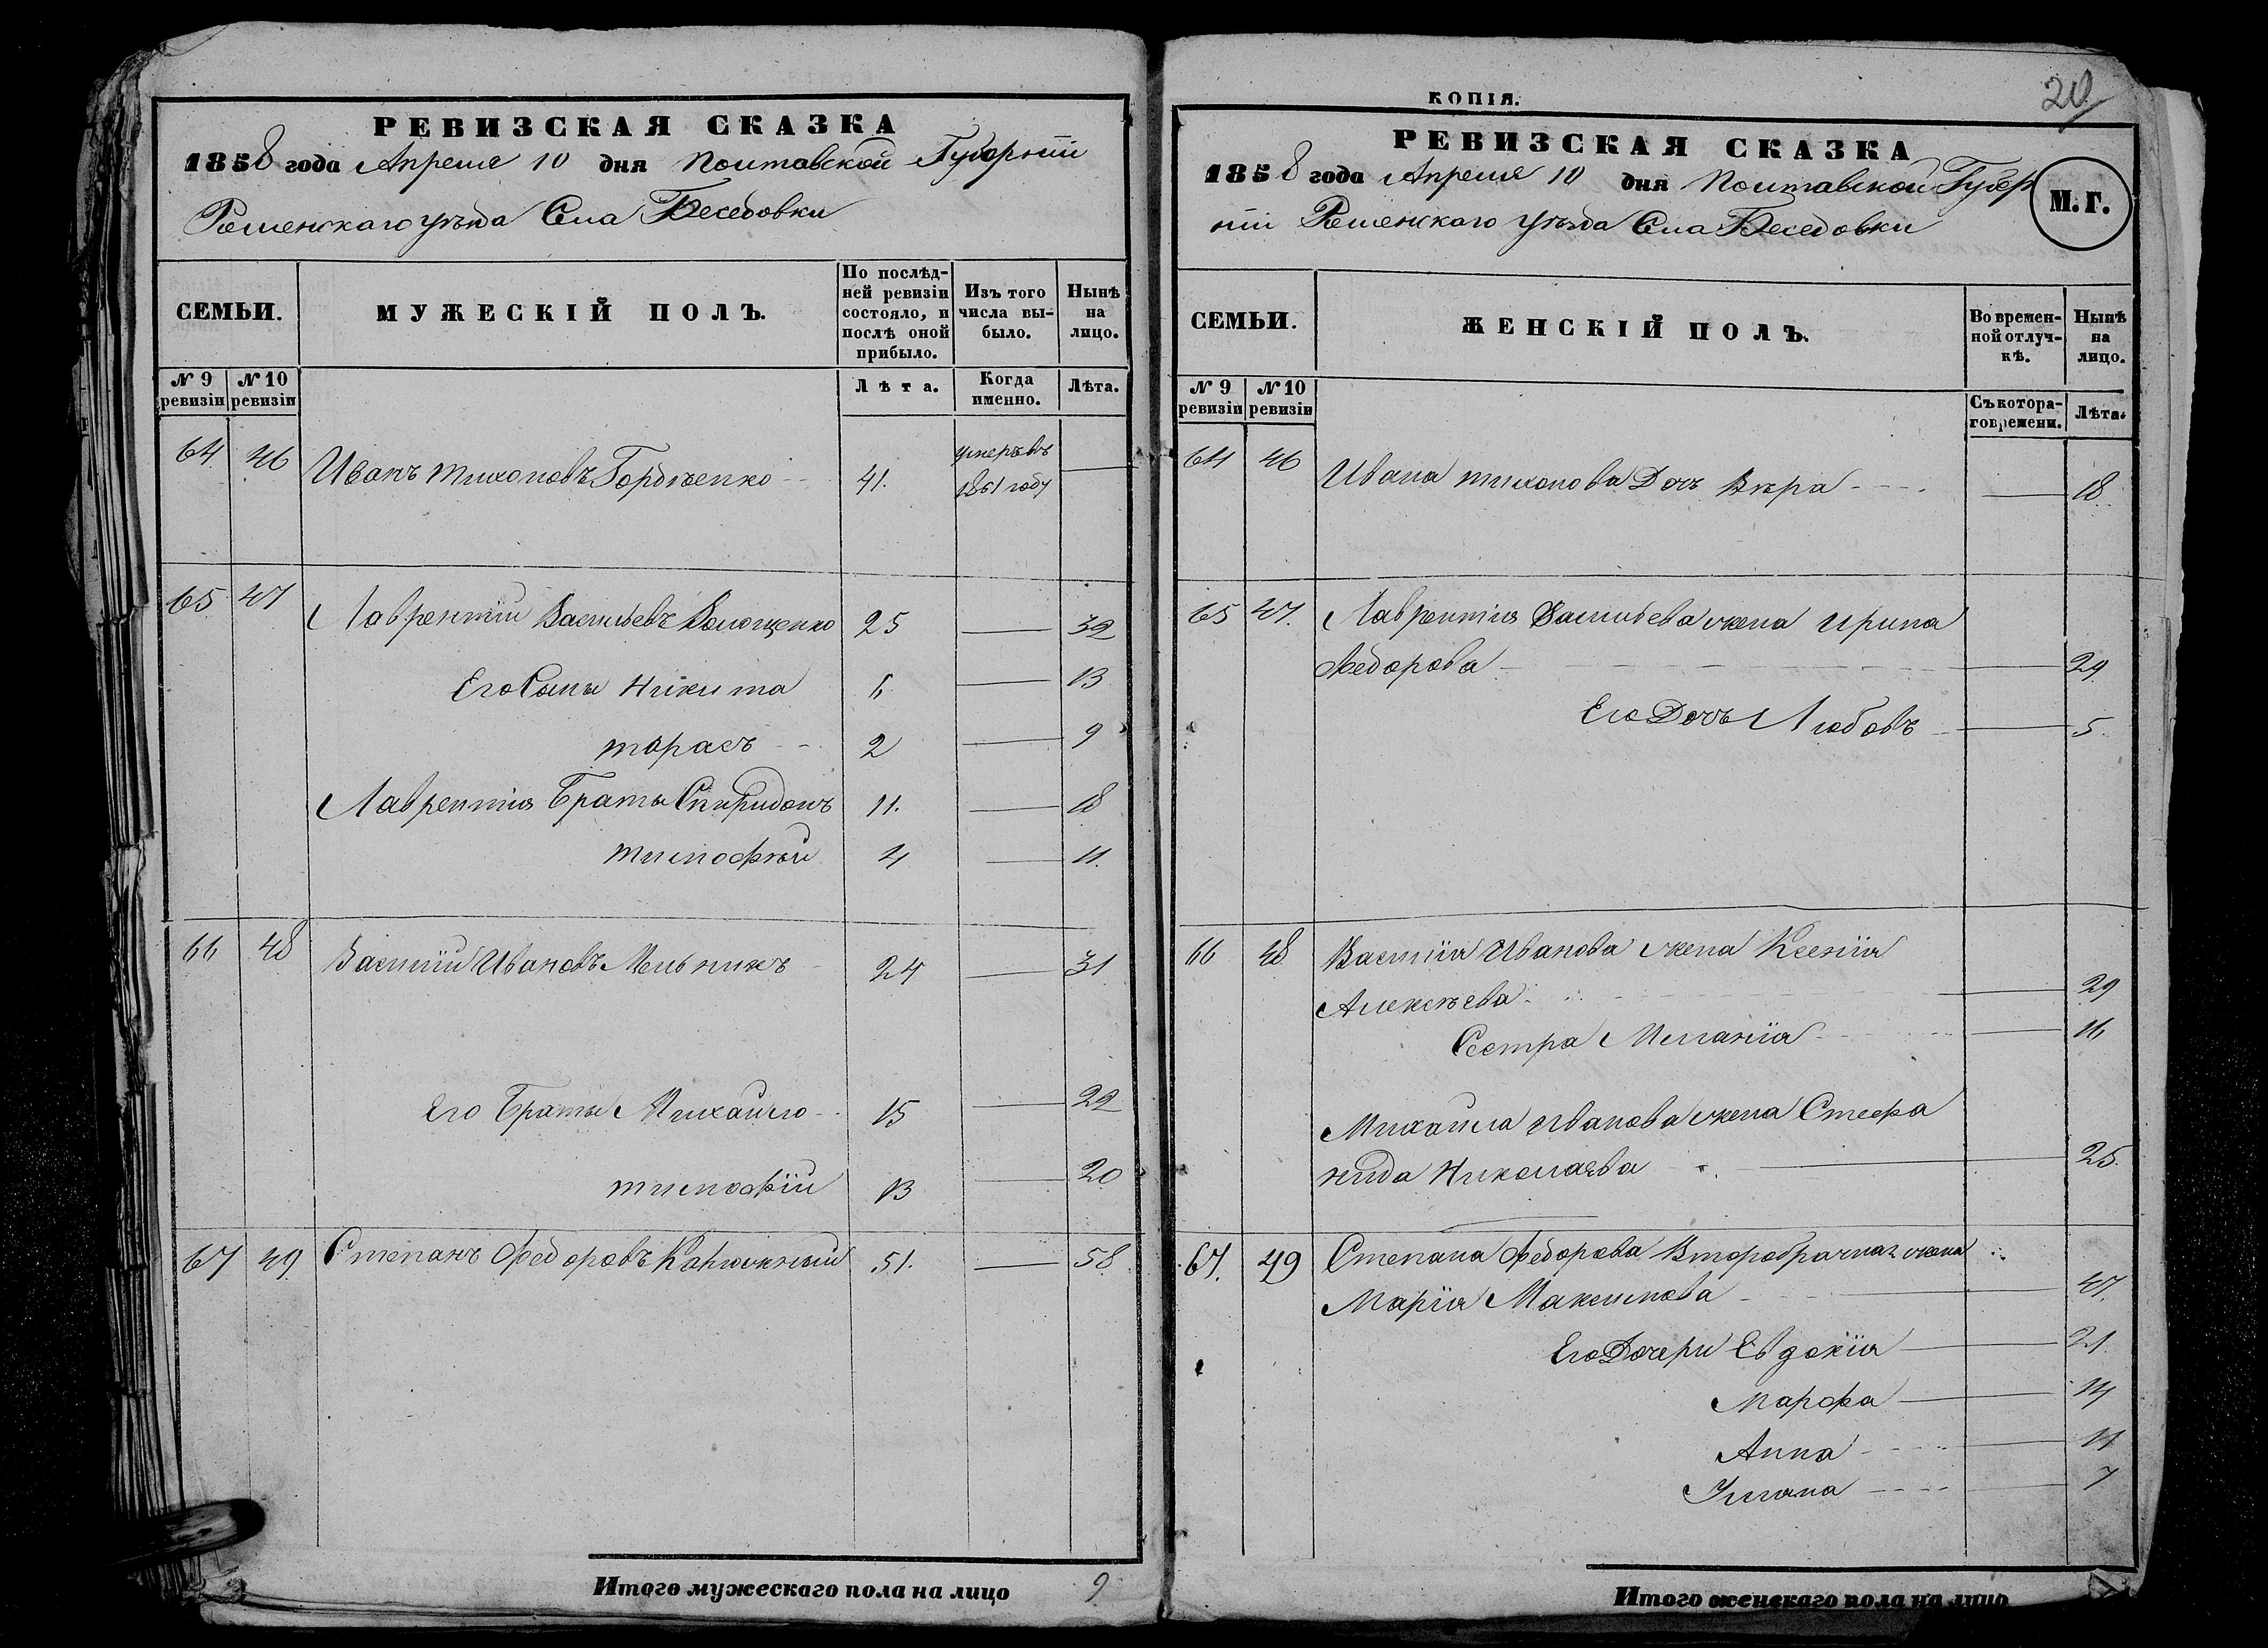 РЕВИЗСКАЯ СКАЗКА
1858 года Апреля 10 дня Полтавской Губернїи
Роменскаго уѣзда Села Беседовки
СЕМЬИ.
МУЖЕСКІЙ ПОЛЪ.
По послѣд-
ней ревизіи
состояло, и
послѣ оной
прибыло.
Изъ того
числа вы-
было.
Нынѣ
на
лицо.
№ 9
ревизіи
№ 10
ревизіи
Лѣта.
Когда
именно.
Лѣта.
64 46 Иванъ Тихоновъ Гордѣенко 41. умеръ въ
1851 году
65 47 Лаврентїй Васильевъ Волощенко 25 32
Его Сыны Никита 6 13
Тарасъ 2 9
Лаврентїя Браты Спиридонъ 11. 18
Тимофѣй 4 11.
66 48 Василїй Ивановъ Мельникъ 24 31
Его Браты Михайло 15 22
Тимофїй 13 20
67 49 Степанъ Федоровъ 51. 58
Итого мужескаго пола на лицо 9
КОПІЯ.
20
РЕВИЗСКАЯ СКАЗКА
1858 года Апреля 10 дня Полтавской Губер
нїи Роменскаго уѣзда Села Беседовки
М. Г.
СЕМЬИ.
ЖЕНСКІЙ ПОЛЪ.
Во времен-
ной отлуч-
кѣ.
Нынѣ
на
лицо.
№ 9
ревизіи
№ 10
ревизіи
Съ котора-
го времени.
Лѣта.
64 46 Ивана Тихонова Дочъ Вѣра 18
65 47. Лаврентїя Васильева жена Ирина
Федорова 29
Его Дочь Любовъ 5.
66 48 Василїя Иванова жена Ксенїя
Алексѣева 29
Сестра Меланїя 16
Михайла Иванова жена Стефа
нида Николаева 25.
67. 49 Степана Федорова Второбрачная жена
Марїя Максимова 47.
Его Дочери Евдокїя 21.
Марфа 14
Анна 11
Улїяна 7
Итого женскаго пола на лицо